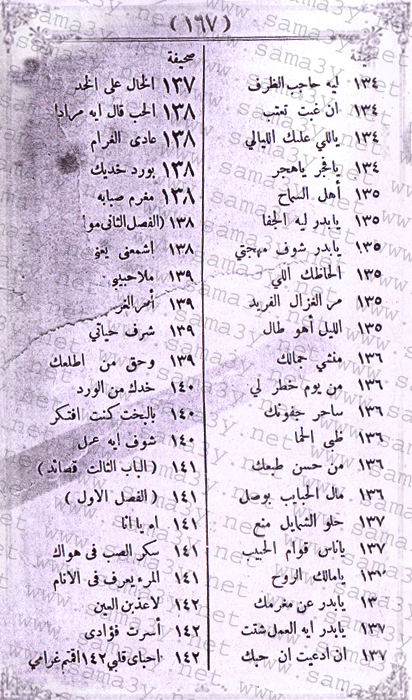 (١٦٧)
١٣٤ ليه حاجب الظرف
١٣٤ ان غبت تعتب
١٣٤ ياللي عليك الليالي
١٣٤ يافجر ياهجر
١٣٥ أهل السماح
١٣٥ يابدر ليه الجفا
١٣٥ يابدر شوف مهجتي
١٣٥ ألحاظك اللي
١٣٥ مر الغزال الفريد
١٣٥ الليل أهو طال
١٣٦ منشي جمالك
١٣٦ من يوم خطر لي
١٣٦ ساحر جفونك
١٣٦ ظبي الحما
١٣٦ من حسن طبعك
١٣٦ مال الحبايب بوصل
١٣٧ حلو الشمايل منع
١٣٧ ياناس قوام الحبيب
يامالك الروح
يابدر عن مغرمك
١٣٧ يابدر ايه العمل شتت
١٣٧ ان ادعيت ان حبك
صحيفة
١٣٧ الخال على الخد
١٣٨ الحب قال ايه مرادا
١٣٨ عادى الغرام
١٣٨ بورد خديك
١٣٨ مغرم صبابه
١٣٨ (الفصل الثانى مو
١٣٨ اشمعنى يعنى
١٣٩ ملا حبيبي
١٣٩
١٣٩ شرف حياتي
١٣٩ وحق من اطلعك
١٤٠ خدك من الورد
١٤٠ يالبخت كنت افتكر
١٤٠ شوف ايه عمل
١٤١ (الباب الثالث قصائد)
١٤١ (الفصل الاول)
١٤١ اه يا انا
١٤١ سكر الصب فى هواك
١٤١ المرء يعرف فى الانام
١٤٢ لاعذبن العين
١٤٢ أسرت فؤادى
١٤٢ احباى قلبي ١٤٢ اقم غرامي
www.sama3y.net